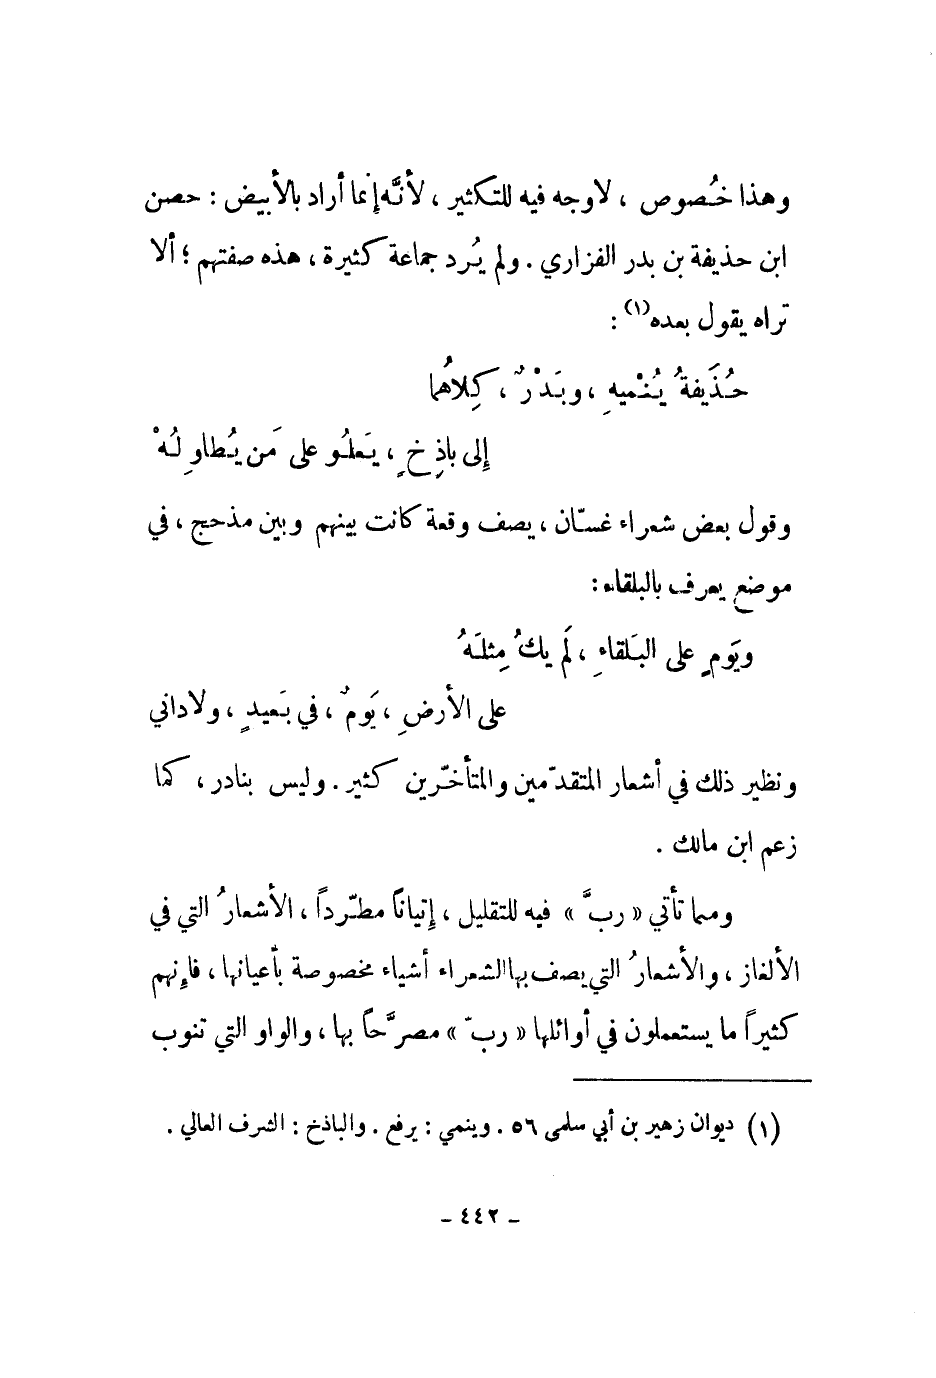 وهذا خُصوص ، لا وجه فيه للتكثير ، لأنَّه إنما أراد بالأبيض : حصن
ابن حذيفة بن بدر الفزاري . ولم يُرد جماعة كثيرة ، هذه صفتهم ؛ ألا
تراه يقول بعده(١) :
حُذَيفةُ يُنْميهِ ، وبَدْرٌ ، كِلاهُما
إلى باذِخٍ ، يَعلُو على مَن يُطاوِلُهْ
وقول بعض شعراء غسّان ، يصف وقعة كانت بينهم وبين مذحج ، في
موضع يعرف بالبلقاء :
ويَومٍ على البَلقاءِ ، لَم يكُ مِثلَهُ
على الأرضِ ، يَومٌ ، في بَعيدٍ ، ولا داني
ونظير ذلك في أشعار المتقدّمين والمتأخّرين كثير . وليس بنادر ، كما
زعم ابن مالك .
ومما تأتي « ربَّ » فيه للتقليل ، إتيانًا مطّردًا ، الأشعارُ التي في
الألغاز ، والأشعارُ التي يصف بها الشعراء أشياء مخصوصة بأعيانها ، فإنهم
كثيرًا ما يستعملون في أوائلها « ربّ » مصرَّحًا بها ، والواو التي تنوب
(١) ديوان زهير بن أبي سلمى ٥٦ . وينمي : يرفع . والباذخ : الشرف العالي .
- ٤٤٢ -